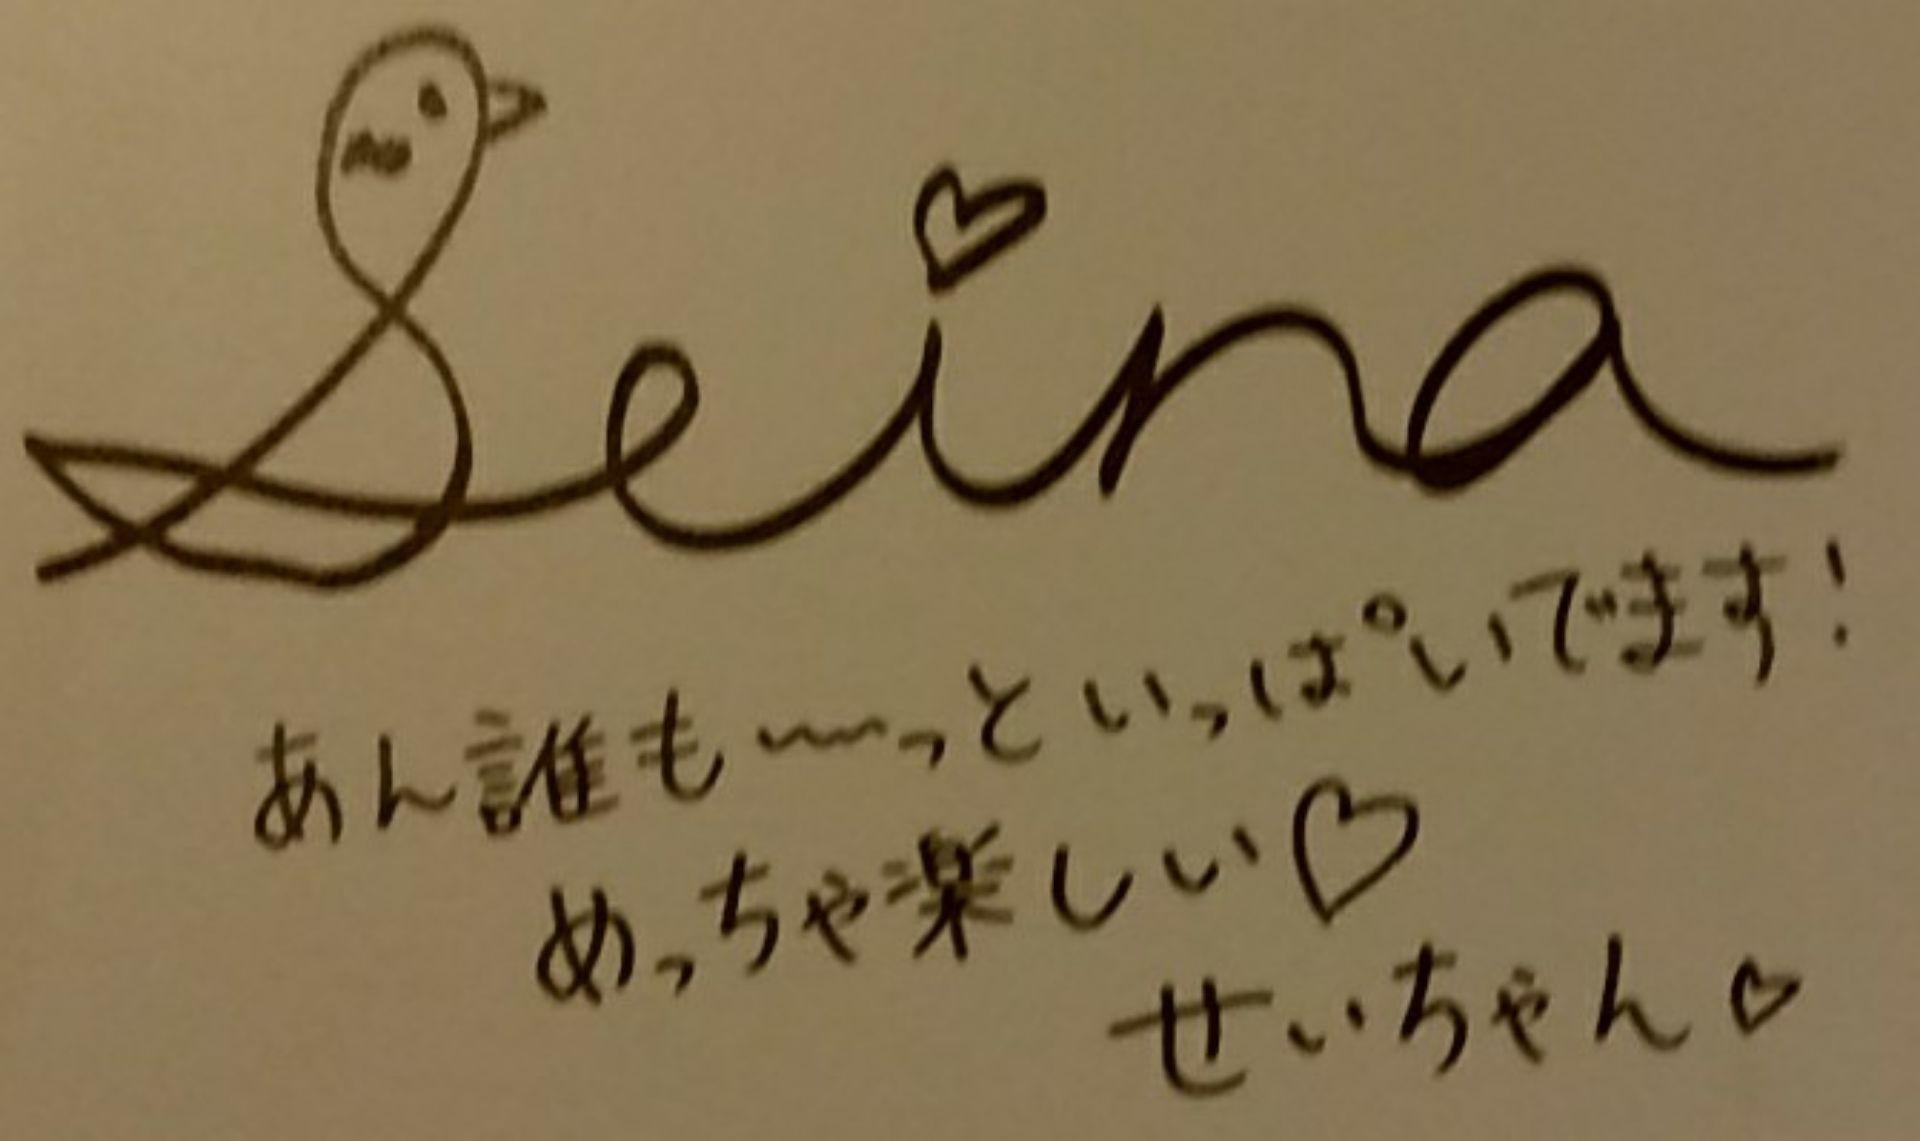 Seina
あん誰も〜〜っといっぱいでます!
めっちゃ楽しい♡
せいちゃん♡